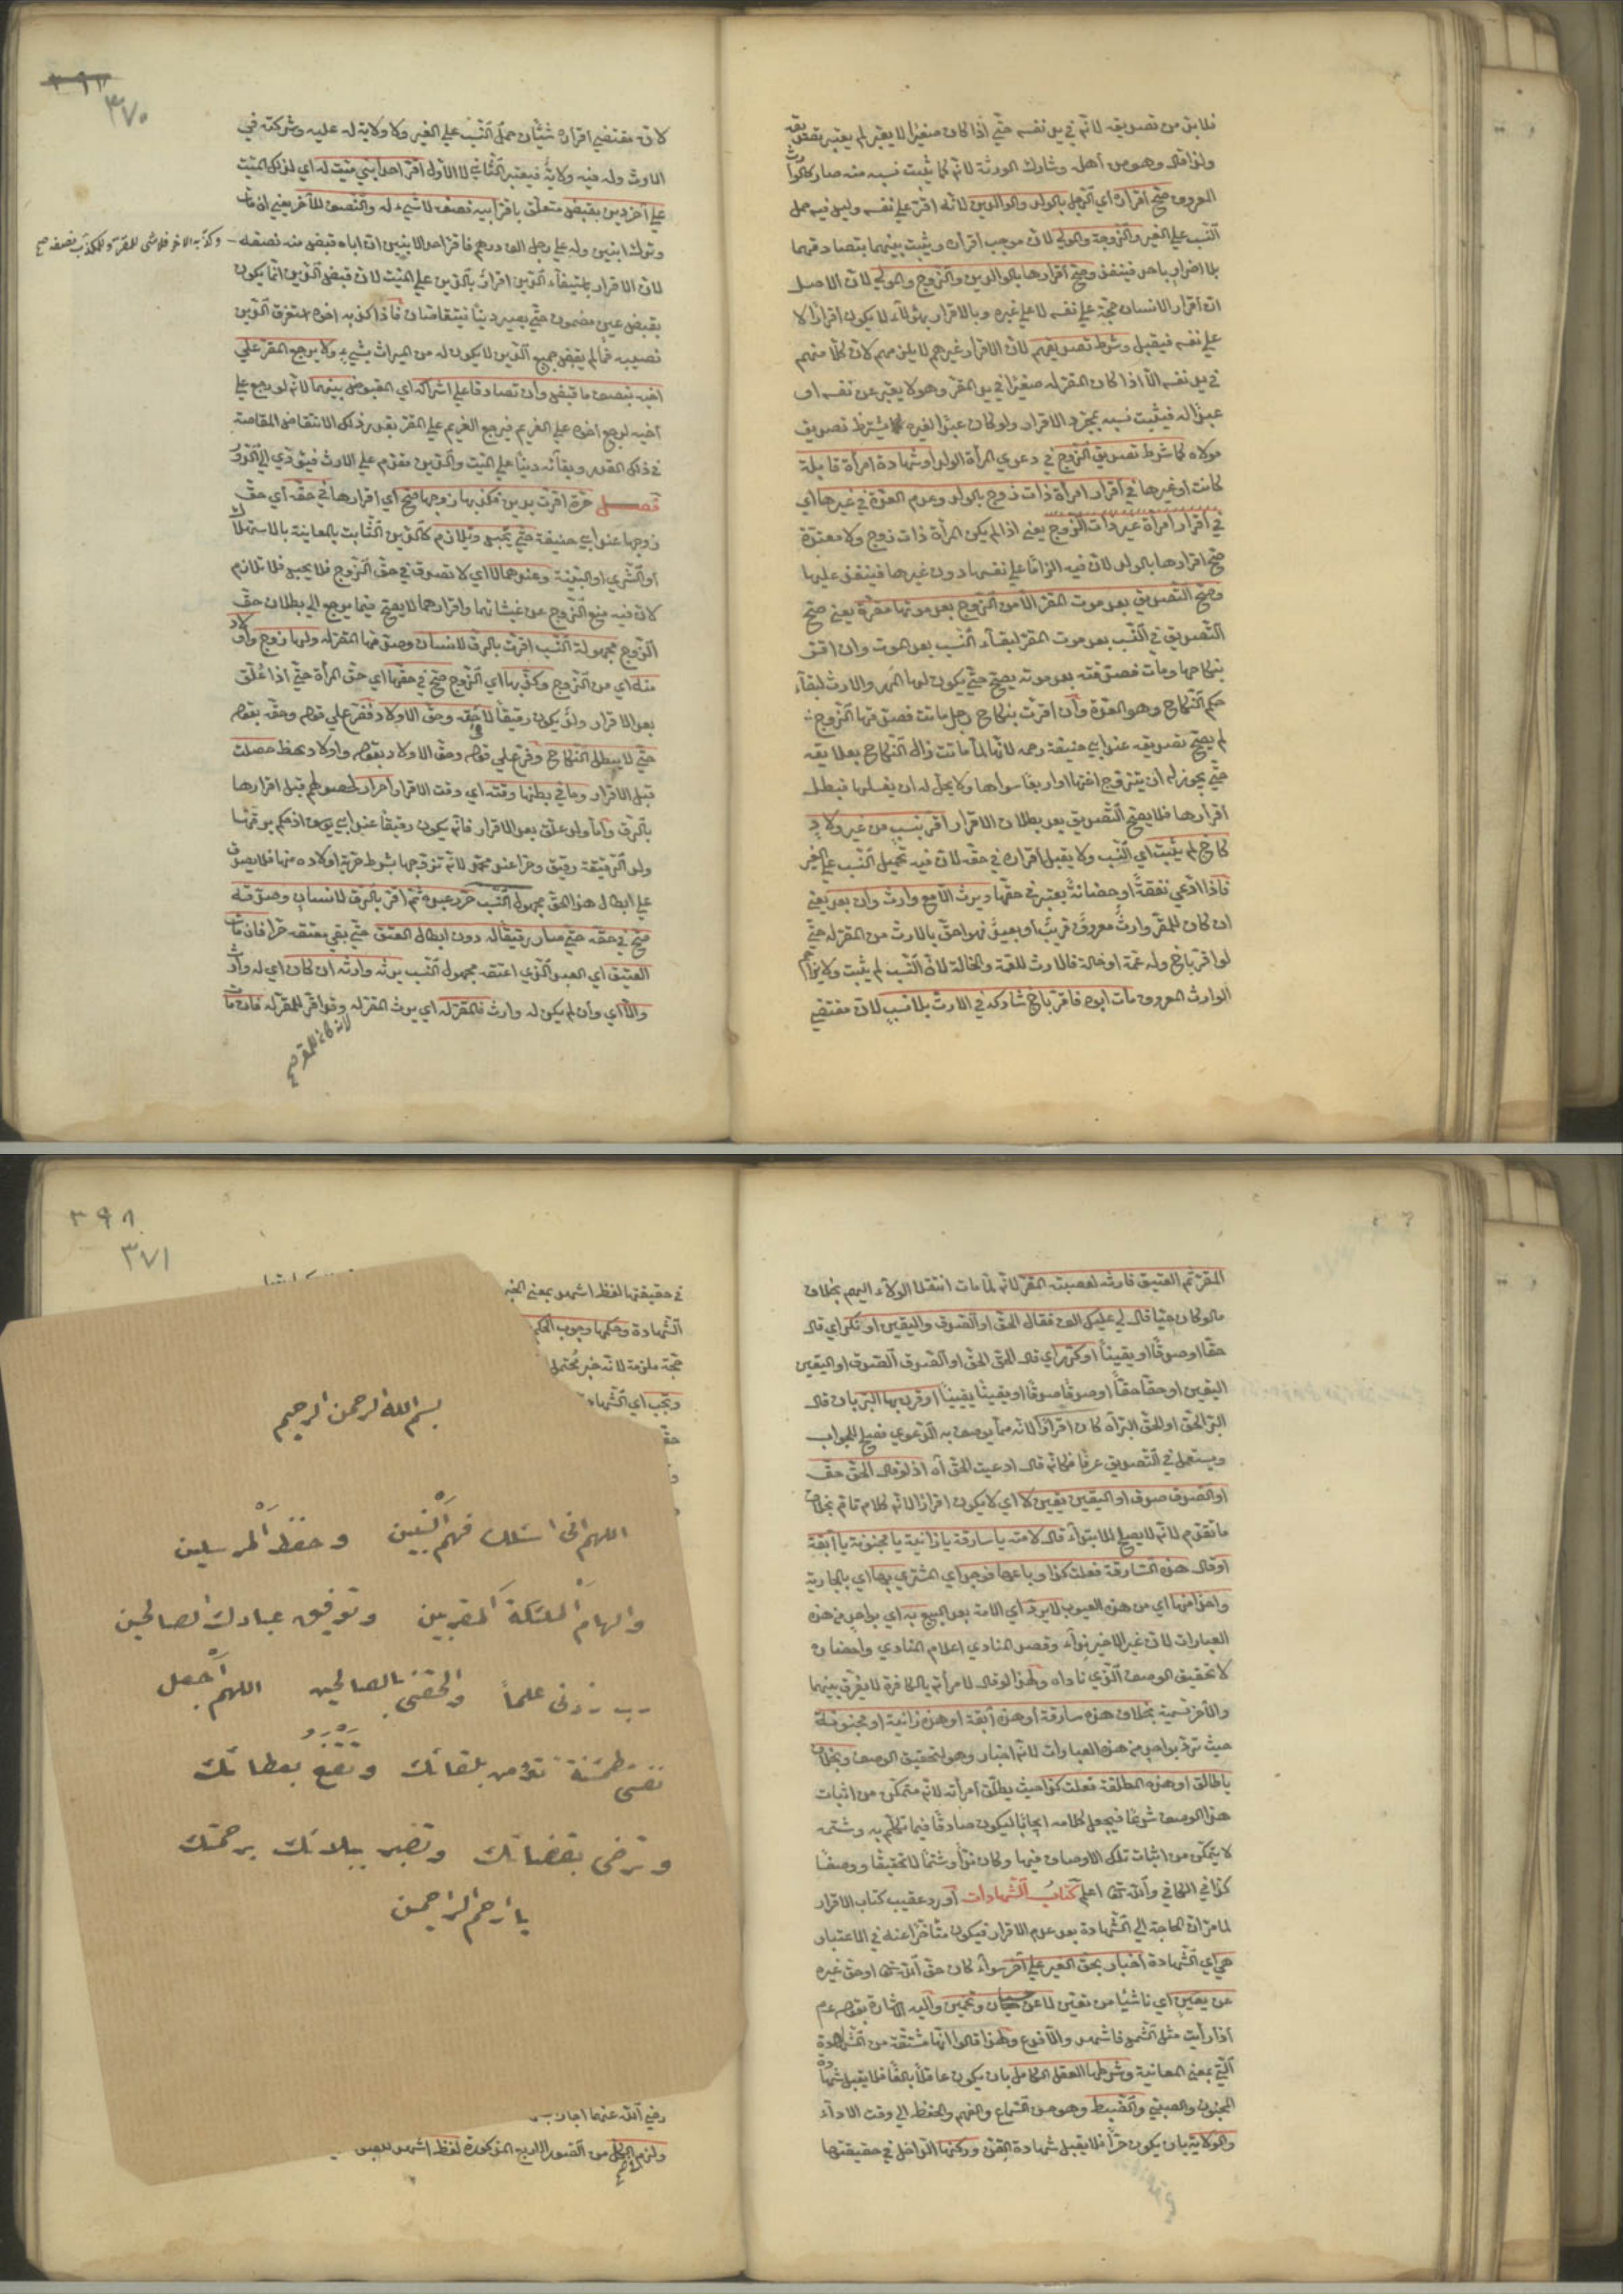 فلا بد من تصديقه لانه في يد نفسه حتي اذا كان صغيرا لا يعبر لم يعتبر تصديقه
ولذا قال وهو من أهل وشارك الورثة لانه لما يثبت نسبه منه صار كالوارث
المعروف صح اقراره أي الرجل بالولد والوالدين لانه اقر علي نفسه وليس فيه حمل
النسب علي الغير والزوجة والمولي لان موجب اقراره يثبت بينهما بتصادقهما
بلا اضرار باحد فينفذ وصح اقرارها بالوالدين والزوج والمولي لان الاصل
ان اقرار الانسان حجة علي نفسه لا علي غيره وبالاقرار بهؤلاء لا يكون اقرارا الا
علي نفسه فيقبل وشرط تصديقهم لان الاقرار غيرهم لا يلزمهم لان كلا منهم
في يد نفسه الا اذا كان المقر له صغيرا في يد المقر وهو لا يعبر عن نفسه او
عبدا له فيثبت نسبه بمجرد الاقرار ولو كان عبدا لغيره يشترط تصديق
مولاه كما شرط تصديق الزوج في دعوي المرأة الولد او شهادة امرأة قابلة
كانت او غيرها في اقرار امرأة ذات زوج بالولد وعدم العدة في غيرها اي
في اقرار امرأة غير ذات الزوج يعني اذا لم يكن المرأة ذات زوج ولا معتدة
صح اقرارها بالولد لان فيه الزاما علي نفسها دون غيرها فينفذ عليها
وصح التصديق بعد موت المقر الا من الزوج بعد موتها مقرة يعني صح
التصديق في النسب بعد موت المقر لبقاء النسب بعد الموت وان اقر
بنكاحها ومات فصدقته بعد موته يصح حتي يكون لها المهر والارث لبقاء
حكم النكاح وهو العدة وان اقرت بنكاح رجل ماتت فصدقها الزوج
لم يصح تصديقه عند ابي حنيفة رحمه لانها لما ماتت زال النكاح بعلايقه
حتي يجوز له ان يتزوج اختها او اربعا سواها ولا يحل له ان يغسلها فبطل
اقرارها فلا يصح التصديق بعد بطلان الاقرار اقر بنسب من غير ولاد
كاخ لم يثبت اي النسب ولا يقبل اقراره في حقه لان فيه تحميل النسب علي الغير
فاذا ادعي نفقة او حضانة يعتبر في حقها ويرث الا مع وارث وان بعد يعني
ان كان للمقر وارث معروف قريب او بعيد فهو احق بالارث من المقر له حتي
لو اقر باخ وله عمة او خالة فالارث للعمة والخالة لان النسب لم يثبت ولا يزاحم
الوارث المعروف مات ابوه فاقر باخ شاركه في الارث بلا نسب لان مقتضي
٣٧٠
لان مقتضي اقراره شيئان حمل النسب علي الغير ولا ولاية له عليه وشركته في
الارث وله فيه ولاية فيعتبر الثاني لا الاول اقر احد ابني ميت له اي لذلك الميت
علي آخر دين بقبض متعلق باقر ابيه نصفه لا شيء له والنصف للآخر يعني ان مات
وترك ابنين وله علي رجل الف درهم فاقر احد الابنين ان اباه قبض منه نصفه
وكذبه الاخر فلا شي للمقر وللمكذب نصفه صح
لان الاقرار باستيفاء الدين اقرار بالدين علي الميت لان قبض الدين انما يكون
بقبض عين مضمون حتي يصير دينا فيتقاصان فاذا كذبه اخوه استغرق الدين
نصيبه فما لم يقبض جميع الدين لا يكون له من الميراث شيء ولا يرجع المقر علي
اخيه بنصف ما قبض وان تصادقا علي اشراك اي المقبوض بينهما لانه لو رجع علي
أخيه لرجع اخوه علي الغريم فيرجع الغريم علي المقر بقدر ذلك لانتقاض المقاصة
في ذلك القدر وبقائه دينا علي الميت والدين مقدم علي الارث فيؤدي الي الدور
فصل حرة اقرت بدين فكذبها زوجها صح اي اقرارها في حقه أي حق
زوجها عند ابي حنيفة حتي تحبس وتلازم كالدين الثابت بالمعاينة بالاستهلاك
او الشري او البينة وعندهما لا اي لا تصدق في حق الزوج فلا تحبس فلا تلازم
لان فيه منع الزوج عن غشيانها واقرارها لا يصح فيما يرجع الي بطلان حق
الزوج مجهولة النسب اقرت بالرق لانسان وصدقها المقر له ولها زوج واولاد
منه اي من الزوج وكذبها اي الزوج صح في حقها اي حق المرأة حتي اذا علق
بعد الاقرار ولد يكون رقيقا لا حقه وحق الاولاد ففرع علي قوله وحقه بقوله
حتي لا يبطل النكاح وفرع علي قوله وحق الاولاد بقوله واولاد بهظ حصلت
قبل الاقرار وما في بطنها وقته اي وقت الاقرار احرار لحصولهم قبل اقرارها
بالرق وأما ولد علق بعد الاقرار فانه يكون رقيقا عند ابي يوسف اذ حكم برقها
وولد الرقيقة رقيق وحرا عند محمد لانه تزوجها بشرط حرية اولاده منها فلا يصدق
علي ابطال هذا الحق مجهول النسب حرر عبده ثم اقر بالرق لانسان وصدقه
صح في حقه حتي صار رقيقا له دون ابطال العتق حتي بقي معتقه حرا فان مات
العتيق اي العبد الذي اعتقه مجهول النسب يرثه وارثه ان كان اي له وارث
والا اي وان لم يكن له وارث فالمقر له اي يرث المقر له وقد اقر للمقر له فان مات
المقر ثم العتيق فارثه لعصبته المقر لانه لما مات انتقل الولاء اليهم بخلاف
ما لو كان حيا قال لي عليك الف فقال الحق او الصدق واليقين او نكر اي قال
حقا او صدقا او يقينا او كرر اي قال الحق الحق او الصدق الصدق او اليقين
اليقين او حقا حقا او صدقا صدقا او يقينا يقينا او قرن بها البر بان قال
البر الحق او الحق البر آه كان اقرارا لانه مما يوصف به الدعوي فصلح للجواب
ويستعمل في التصديق عرفا فكانه قال ادعيت الحق آه اذ لو قال الحق حق
او الصدق صدق او اليقين يقين لا اي لا يكون اقرارا لانه كلام تام بخلاف
ما تقدم لانه لا يصلح للابتداء قال لامته يا سارقة يا زانية يا مجنونة يا آبقة
او قال هذه السارقة فعلت كذا وباعها فوجد اي المشتري بها اي بالجارية
واحدا منها اي من هذه العيوب لا يرد اي الامة بعد البيع به اي بواحد من هذه
العبارات لان غير الاخير نداء وقصد المنادي اعلام المنادي واحضاره
لا تحقيق الوصف الذي ناداه ولهذا لو قال لامرأته يا كافرة لا يفرق بينهما
والآخر تسمية بخلاف هذه سارقة او هذه آبقة او هذه زانية او مجنونة
حيث ترد بواحد من هذه العبارات لانه اخبار وهو لتحقيق الوصف وبخلاف
يا طالق او هذه المطلقة فعلت كذا حيث يطلق امرأته لانه متمكن من اثبات
هذا الوصف شرعا فيجعل كلامه ايجابا ليكون صادقا فيما تكلم به وشتمه
لا يتمكن من اثبات تلك الاوصاف فيها وكان نداء وشتما لا تحقيقا ووصفا
كذا في الكافي والله تع اعلم كتاب الشهادات أورد عقيب كتاب الاقرار
لما مر ان الحاجة الي الشهادة بعد عدم الاقرار فيكون متأخرا عنه في الاعتبار
هي اي الشهادة اخبار بحق الغير علي آخر سواء كان حق الله تع او حق غيره
عن يقين اي ناشيا من تعين لا عن حسبان وتخمين واليه الاشارة بقوله عم
اذا رأيت مثل الشمس فاشهد والا فدع ولهذا قالوا انها مشتقة من المشاهدة
التي بمعني المعاينة وشرطها العقل الكامل بان يكون عاقلا بالغا فلا يقبل شهادة
المجنون والصبي والضبط وهو حسن السماع والفهم والحفظ الي وقت الاداء
والولاية بان يكون حرا فلا يقبل شهادة القن وركنها الداخل في حقيقتها
٣٩٨
٣٧١
في حقيقتها لفظ اشهد بمعني الخبر
الشهادة وحكمها وجوب الحكم
حجة ملزمة لانه خبر محتمل
وتجب اي الشهادة
بسم الله الرحمن الرحيم
اللهم اني اسئلك فهم النبيين وحفظ المرسلين
والهام الملئكة المقربين وتوفيق عبادك الصالحين
رب زدني علما والحقني بالصالحين اللهم اجعل
نفسي مطمئنة تؤمن بلقائك وتقنع بعطائك
وترضى بقضائك وتصبر ببلائك برحمتك
يا ارحم الراحمين
رضي الله عنهما اجازه
ولزم الكل من الصور الاربع المذكورة لفظ اشهد للقبول